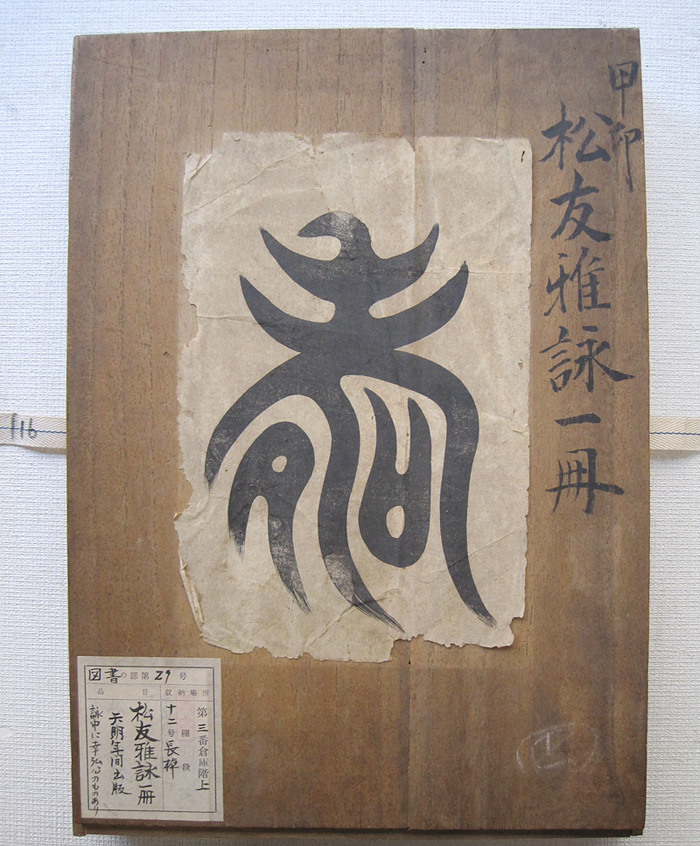 甲印
松友雅詠一冊
f16
図書の部第29号
品目 収納場所
第三番倉庫階上
棚段
十二号長棹
松友雅詠一冊
天明年間出版
詠中に幸弘公のものあり